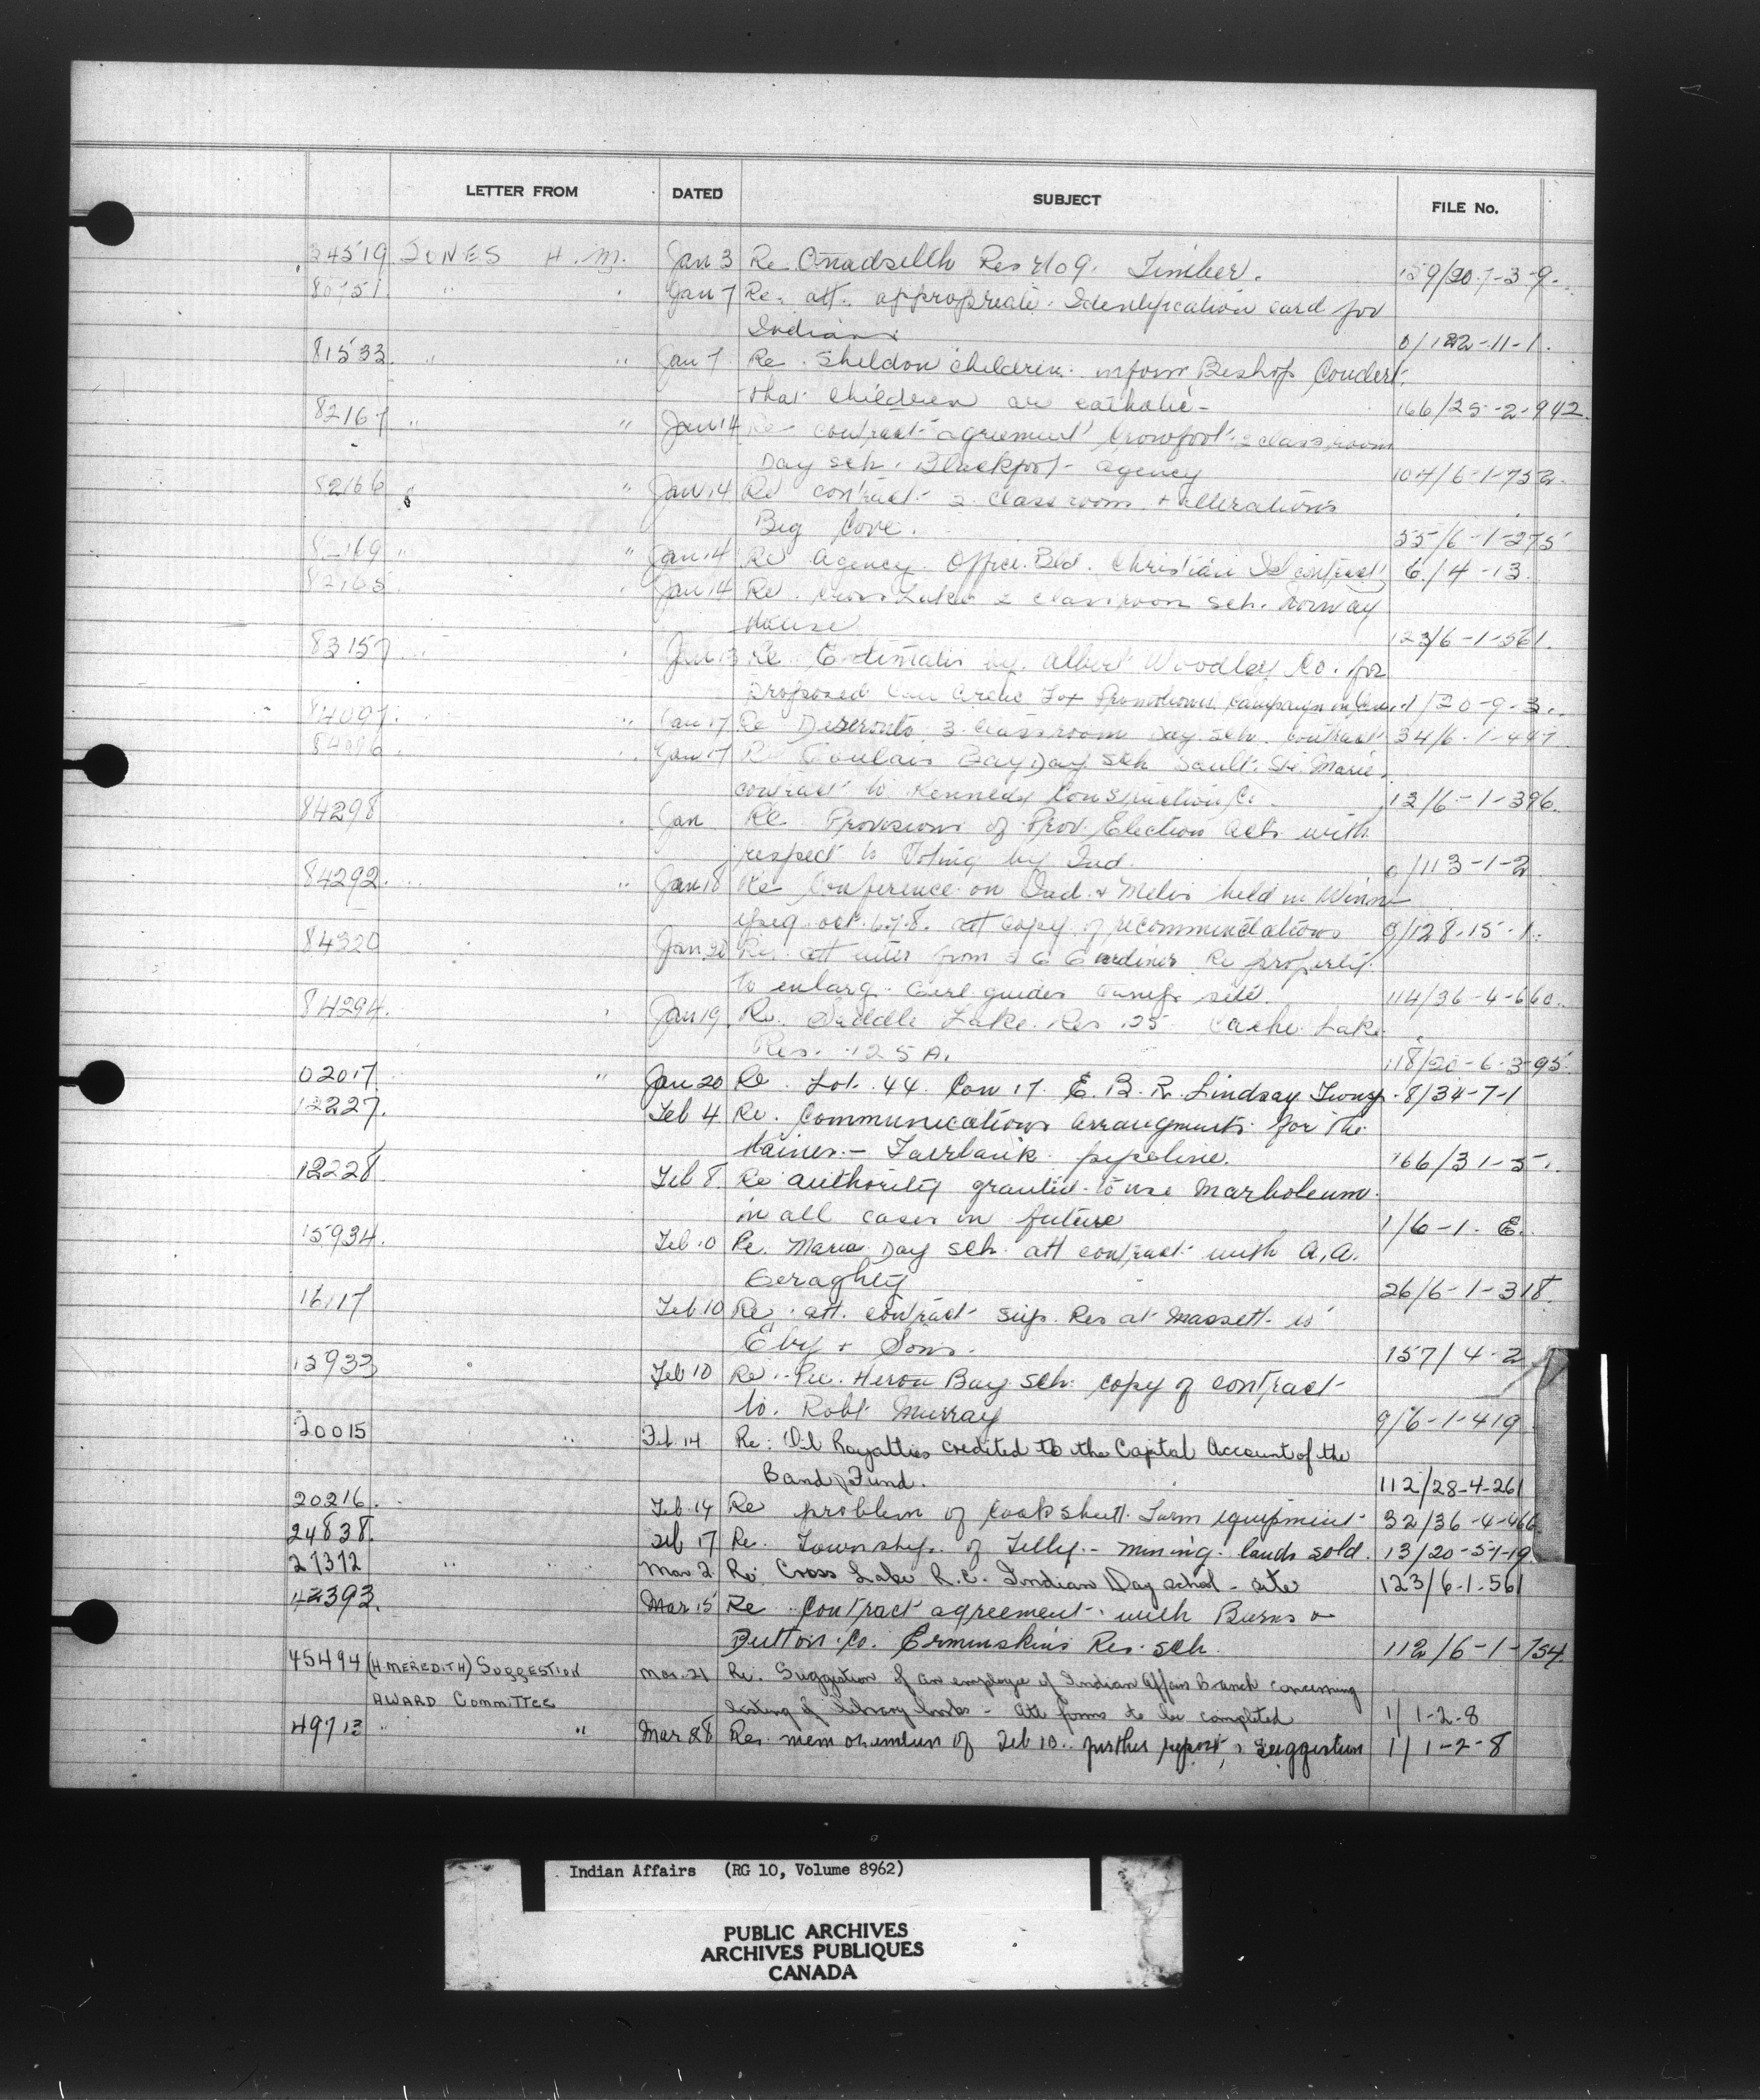 LETTER FROM DATED SUBJECT FILE No.
34519 JONES H. M. Jan 3 Re Res no 9. Timber. 159/20-7-3-9.
80751 " Jan 7 Re. att. appropriate Identification card for
Indians 0/122-11-1.
81533. " " Jan 7 Re Sheldon children inform Bishop Coudert
that children are catholic - 166/25-2-942.
82167 " " Jan 14 Re contract agreement Crowfoot 2 classroom
Day sch. Blackfoot agency 104/6-1-752.
82166 " " Jan 14 Re contract 2 classroom + alterations
Big Cove. 55/6-1-275
82169 " " Jan 14 Re Agency Office Bld. Christian Isl contract 6/4-13.
82165 Jan 14 Re. Cross Lake 2 classroom sch. Norway
House 123/6-1-561.
83157 Jan 13 Re Estimates by Albert Woodley Co. for
Proposed Can Arctic Fox Promotional Campaign in 1/20-9-3.
84097. " Jan 17 Re Deseronto 3 classroom Day sch. contract 34/6-1-447
84096 Jan 17 Re Goulais Bay Day Sch Sault. Ste Marie
contract to Kennedy Construction Co. 12/6-1-396.
84298 Jan Re Provisions of Prov. Election Acts with
respect to Voting by Ind. 0/113-1-2
84292. " Jan 18 Re Conference on Ind. & Metis held in Winn
ipeg oct. 6.7.8. att copy of recommendations 9/128-15-1.
84320 Jan 20 Re. att letter from Gardiner Re property
to enlarg. Girl guides camp site. 114/36-4-660.
84294. Jan 19 Re. Saddle Lake Res 125 Cache Lake
Res. 125 A. 118/20-6-3-95.
02017 " Jan 20 Re Lot. 44. Con 17. E. B. R. Lindsay Twnsp. 8/34-7-1
12227. Feb 4 Re. Communications arrangments for the
Haines - Fairbank pipeline. 166/31-5-.
12228 Feb 8. Re authority granted to use Marboleum
in all cases in future 1/6-1. E.
15934. Feb 10 Re. Maria Day sch. att contract with A. A.
Geraghty 26/6-1-318.
16117 Feb 10 Re. att. contract Sup. Res at Massett to
Eby & Sons. 157/4-2
15933 Feb 10 Re. Pic. Heron Bay sch. copy of contract
to. Robt Murray 9/6-1-419
20015 " Feb. 14 Re: Oil Royalties credited to the Capital Account of the
Band Fund. 112/28-4-261
20216. Feb 14 Re problem of Cockshutt Farm equipment 32/36-4-466
24838. Feb 17 Re. Township. of Tilly - mining lands sold. 13/20-5-1-19
27372 " " Mar 2. Re: Cross Lake R.C. Indian Day school - site 123/6-1-561
42393. Mar 15 Re Contract agreement with Burns &
Dutton Co. Ermineskins Res. sch. 112/6-1-754.
45494 (H MEREDITH) SUGGESTION Mar. 21 Re. Suggestion of an employee of Indian Affairs Branch concerning
AWARD COMMITTEE listing of library books - att forms to be completed 1/1-2-8
49713 " " Mar 28 Re. memorandum of Feb 10. further report, suggestion 1/1-2-8
Indian Affairs (RG 10, Volume 8962)
PUBLIC ARCHIVES
ARCHIVES PUBLIQUES
CANADA